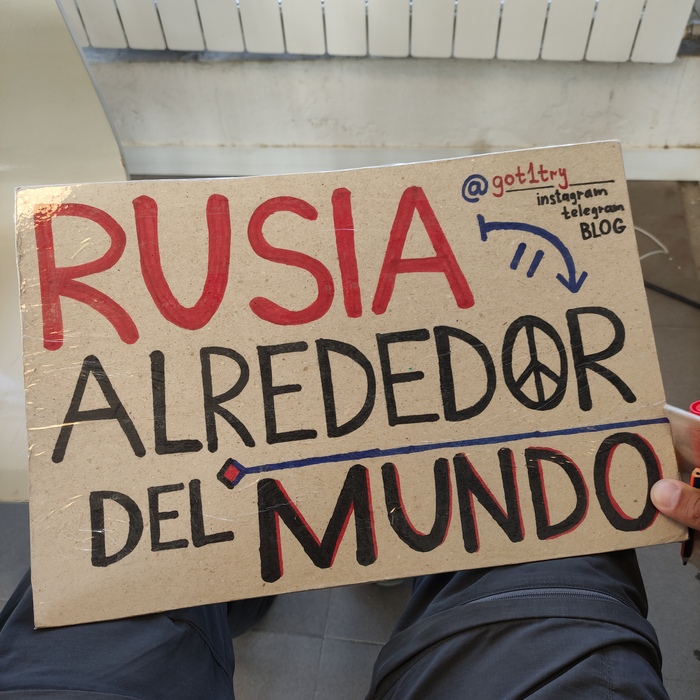 RUSIA
@got1try
instagram
telegram
BLOG
ALREDEDOR
DEL MUNDO